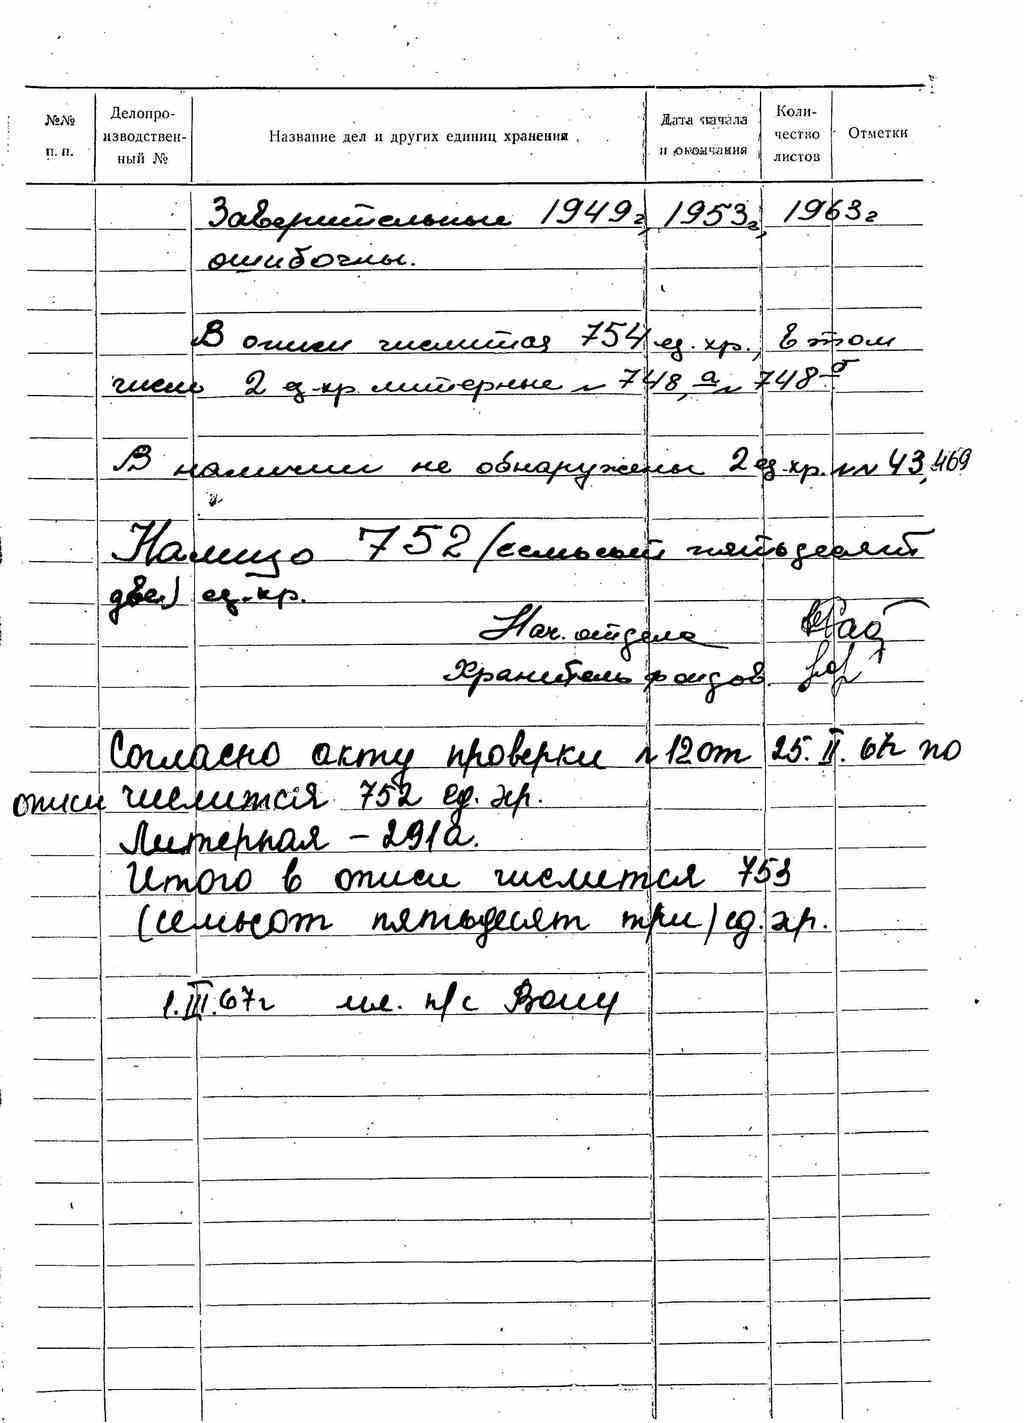 №№ п. п.
Делопро-
изводствен-
ный №
Название дел и других единиц хранения
Дата начала
и окончания
Коли-
чество
листов
Отметки
Заверительные 1949г, 1953г, 1963г
ошибочны.
В описи числится 754 ед. хр., в том
числе 2 ед. хр. литерные № 748а, № 748б
В наличии не обнаружены 2 ед. хр. №№ 43, 469
Налицо 752 (семьсот пятьдесят
две) ед. хр.
Нач. отдела
Хранитель фондов
Согласно акту проверки №12 от 25.II.67г по
описи числится 752 ед. хр.
Литерная – 291а.
Итого в описи числится 753
(семьсот пятьдесят три) ед. хр.
1.III.67г мл. н/с